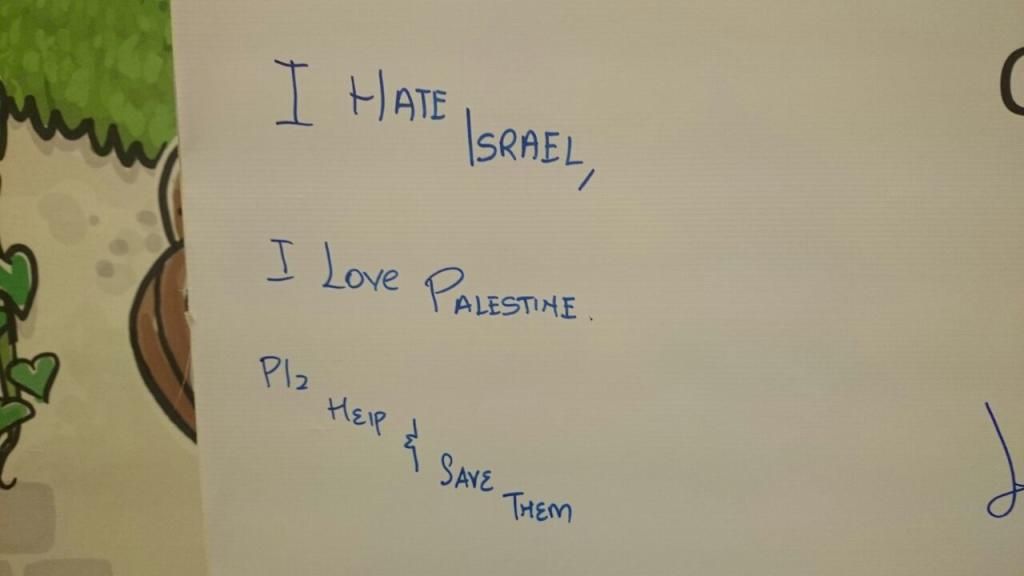 I HATE ISRAEL,
I LOVE PALESTINE.
Plz HElP & SAVE THEM